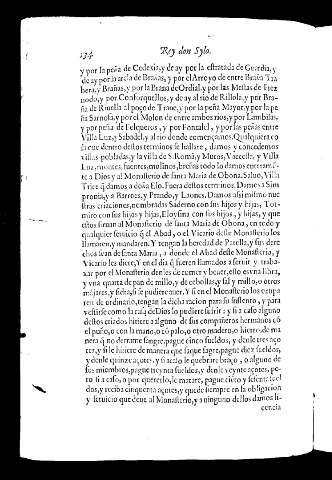 134
Rey don Sylo.
y por la peña de Cedexia, y de ay por la estratada de Guardia, y
de ay por la arcla de Brañas, y por el Arroyo de entre Braña Tra
bera, y Brañas, y por la Braña de Ordial, y por las Mestas de Frez
nedo, y por Conforquellos, y de ay al rio de Rillola, y por Bra-
ña de Ruuella al poço de Trone, y por la peña Mayor, y por la pe
ña Sarnosa, y por el Molon de entre ambos rios, y por Lambillas,
y por peña de Felgueros, y por Fontalel, y por las peñas entre
Villa Luz, y Sabadel, y al rio donde començamos. Qualquier co
sa que dentro destos terminos se hallare, damos y concedemos
villas pobladas, y la villa de S. Romã, y Muros, Vazelle, y Villa
Luz, montes, fuentes, molinos, breñas todo lo damos enterame̅
te a Dios y al Monasterio de santa Maria de Obona. Saluo, Villa
Trice q̃ damos a doña Elo. Fuera destos terminos. Damos a Sim
pronia, y a Barzes, y Prando, y Laones. Damos assi mismo nue
stras criaciones, nombradas Sadenno con sus hijos y hijas, Tot-
miro con sus hijos y hijas, Eloysina con sus hijos, y hijas, y que
estos siruan al Monasterio de santa Maria de Obona, en todo y
qualquier seruicio q̃ el Abad, o el Vicario deste Monasterio los
llamaren, y mandaren. Y tengan la heredad de Patella, y sus dere
chos sean de santa Maria, a donde el Abad deste Monasterio, y
Vicario les dizere, Y en el dia q̃ fueren llamados a seruir y traba-
xar por el Monasterio denles de comer y beuer, esto es vna libra,
y vna quarta de pan de millo, y de cebollas, y sal y millo, o otros
majares, y sidra, si se pudiere auer. Y si en el Monasterio los ocupa
ren de ordinario, tengan la dicha racion para su sustento, y para
vestirse como la casa de Dios lo pudiere sufrir: y si a caso alguno
destos criados hiriere a alguno de sus compañeros hermanos cõ
el puño, o con la mano, o cõ palo, o otro madero, o hierro, de ma
nera q̃ no derrame sangre, pague cinco sueldos, y denle tres aço
tes, y si le hiriere de manera que saque sangre, pague diez sueldos,
y denle quinze açotes, y si acaso le quebrare braço, o alguno de
sus miembros, pague treynta sueldos, y denle veynte açotes, pe-
ro si a caso, o por quererlo, le matare, pague ciento y setenta suel
dos, y reciba cinquenta açotes, y quede siempre en la obligacion
y seruicio que deue al Monasterio, y a ninguno dellos damos li-
cencia